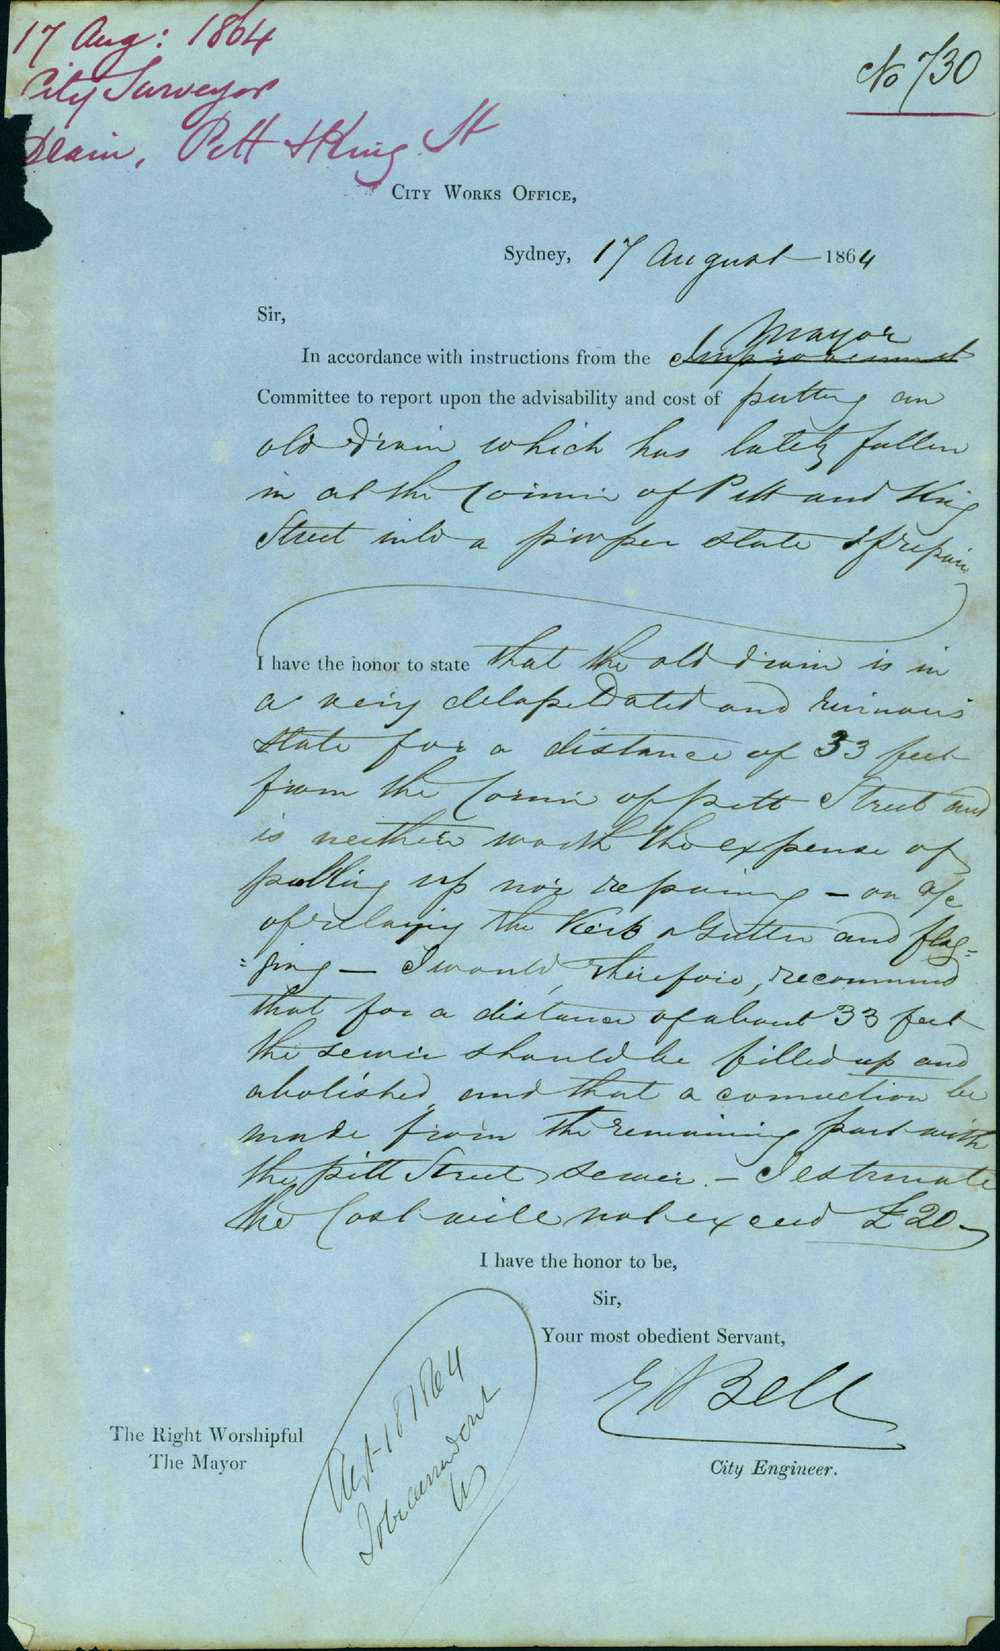 17 Aug: 1864
City Surveyor
Drain, Pitt & King St
No 730
City Works Office,
Sydney, 17 August 1864
Sir,
Mayor
In accordance with instructions from the Improvement
Committee to report upon the advisability and cost of putting an
old drain which has lately fallen
in at the Corner of Pitt and King
Street into a proper state of repair
I have the honor to state that the old drain is in
a very delapidated and ruinous
state for a distance of 33 feet
from the Corner of pitt Street and
is neither worth the expense of
pulling up nor repairing – on a/c
of relaying the Kerb & Gutter and flag-
=ging – I would, therefore, recommend
that for a distance of about 33 feet
the sewer should be filled up and
abolished, and that a connection be
made from the remaining part with
the pitt Street sewer. – I estimate
the Cost will not exceed £20–
I have the honor to be,
Sir,
Your most obedient Servant,
E Bell
City Engineer.
The Right Worshipful
The Mayor
18 1864